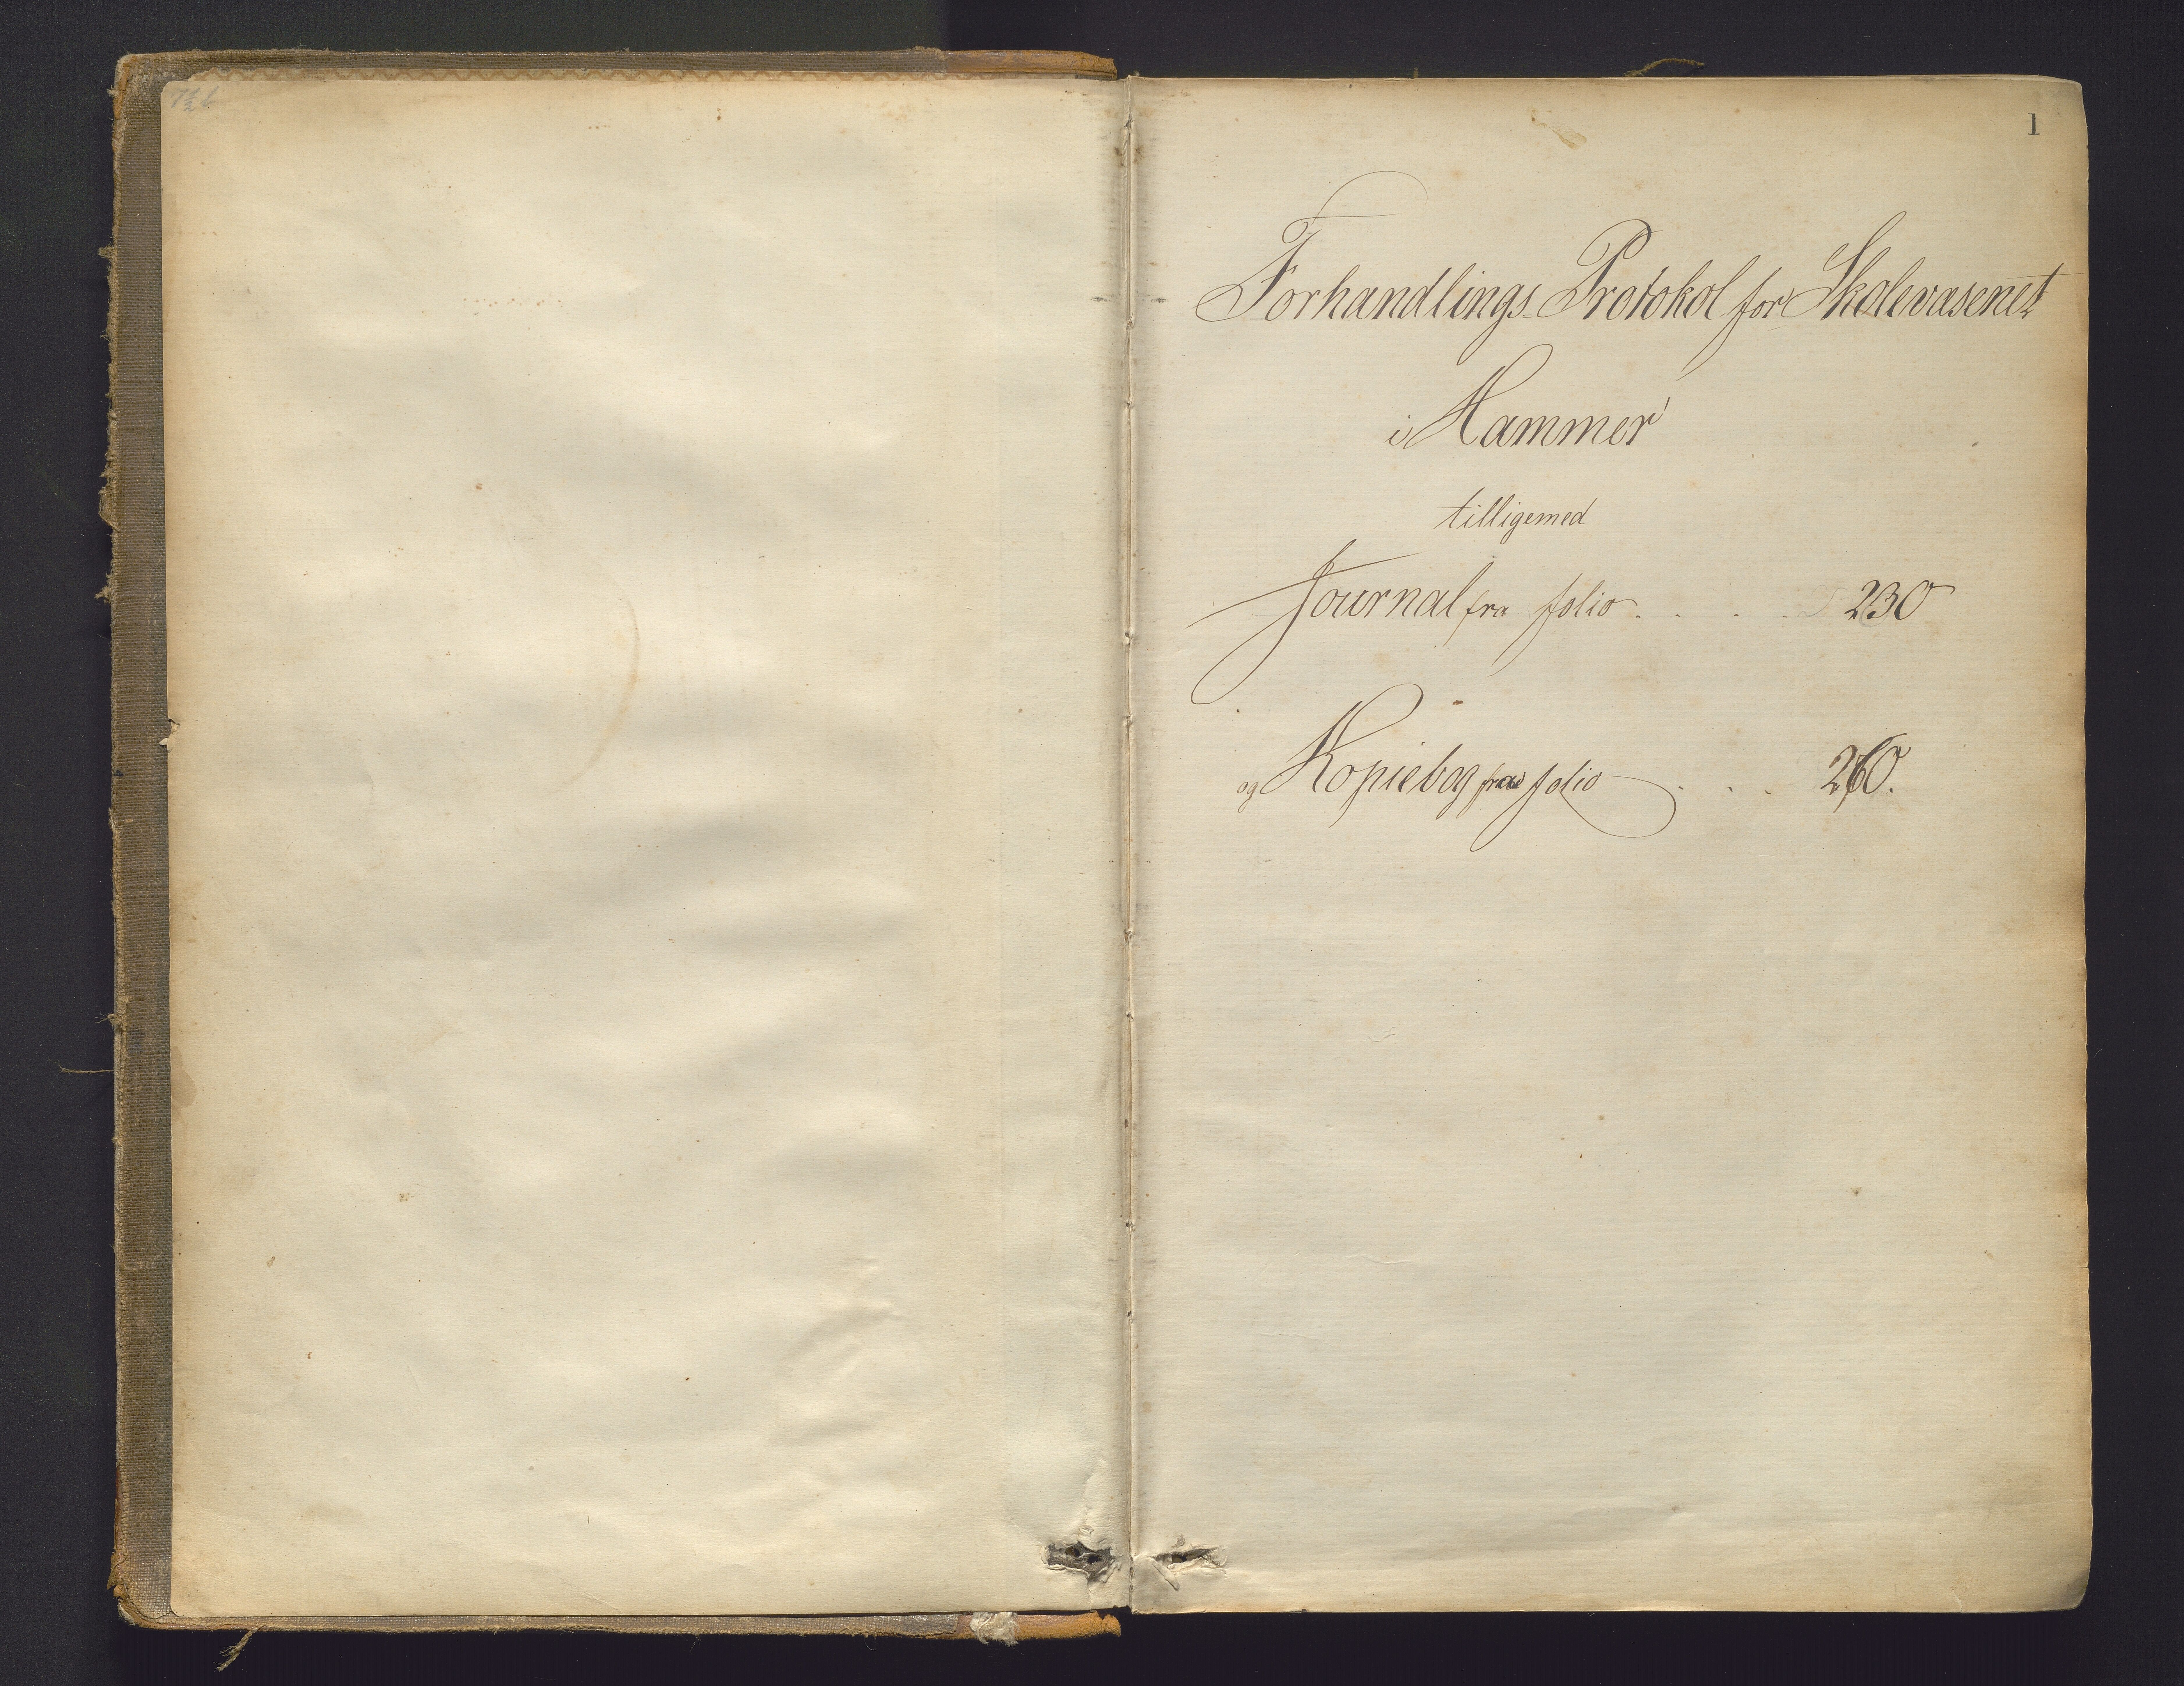 1
Forhandlings-Protokol for Skolevæsenet
i Hammer
tilligemed
Journal fra folio . . . . 230
og Kopiebog fra folio . . . 260.